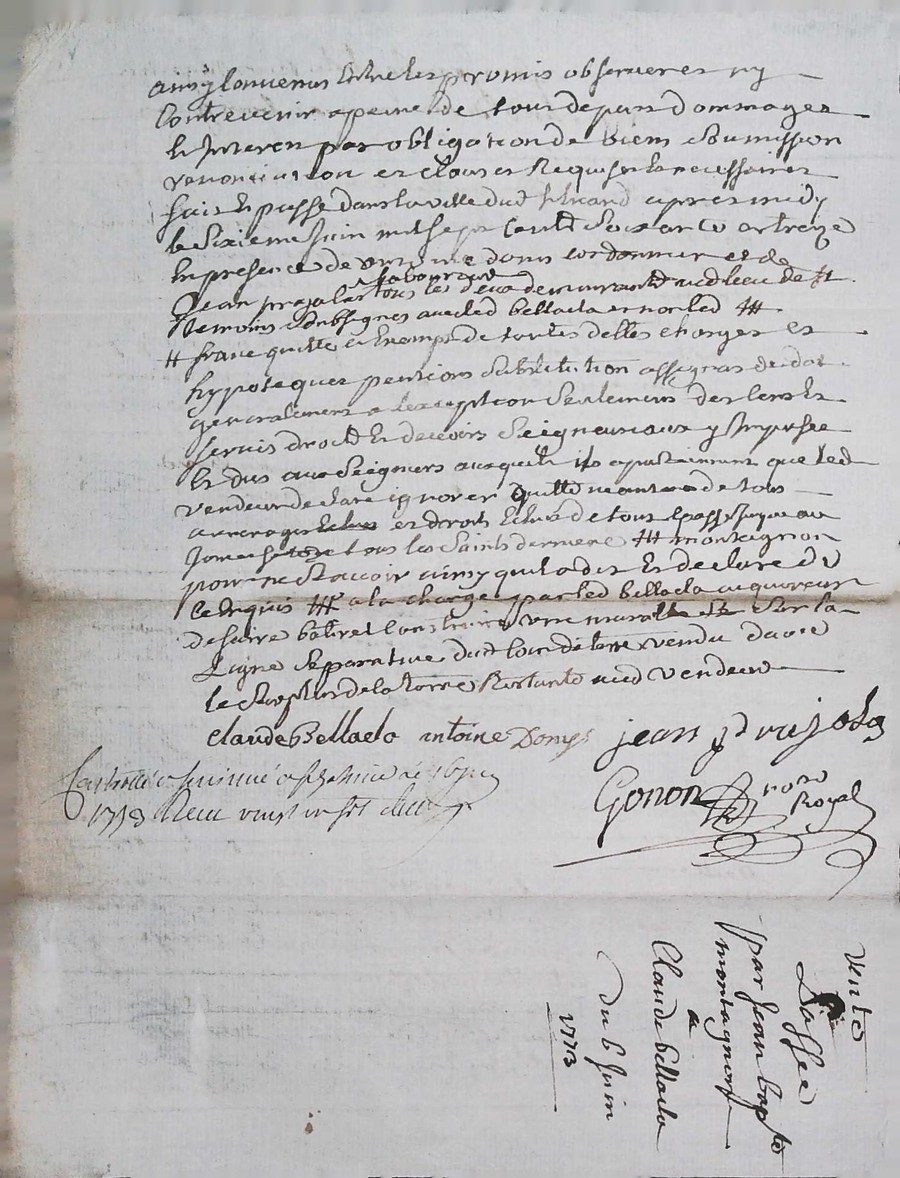 ainsy Convenus Entre les promis observer et ny
Contrevenir a peine de tous depans Dommages
Et Interets par obligation de biens soumission
renonciation et clauses Requises et necessaires
fait Et passé dans la ville dud aprés midy
le Sixieme Juin mil sept Cents Soixante et treze
En presence de donis cordonnier et de
laboureur
Jean prajalas tous les deux demeurants aud lieu de st
temoins soubsignes avec led bellada et non led #
# franc quitte et Exemps de toutes debtes charges et
hypoteques pentions substitution assignas de dot
generalement a lexception seulement des Cens Et
servis droits Et devoirs Seigneuriaux y Imposés
Et dus aux Seigneurs auxquels ils apartiennent que led
vendeur declare ignorer quitte de tous
arrerages et droits Echus de tout le passé Jusques au
Jour et feste de tous les Saints derniere ## montagnon
pour ne Scavoir ainsy quil a dit Et declaré De
Ce Enquis ### a la charge par led bellada acquereur
de faire batir et Construire une muraille Sur la
Ligne Separative dud Coin de terre vendu davec
le Surplus de la terre Restante aud vendeur
claude Bellada antoine Donys jean Prajala
Gonon nore Royal
1773 Receu
Vente
Passée
par Jean bapte
montagnon
a
Claude bellada
Du 6 Juin
1773